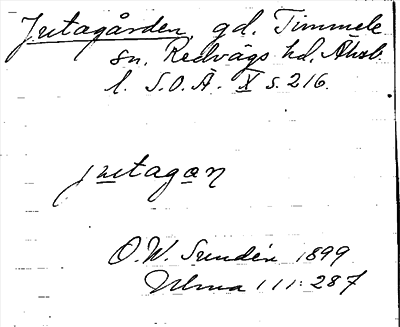 Jutagården, gd. Timmele
sn. Redvägs hd. Älvsb.
l. S.O.Ä. X s. 216.
jutagan
O.W. Sundén 1899
Ulma 111:287